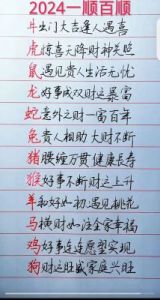 2024一顺百顺
牛出门大吉逢人遇喜
虎惊喜天降财神关照
鼠遇见贵人生活无忧
龙好事成双财运暴富
蛇意外之财一富百年
兔贵人相助大财不断
猪腰缠万贯健康长寿
猴好事不断财运上升
羊和好如初遇见桃花
马横财如注全家幸福
鸡好事连连愿望实现
狗财运旺盛家庭兴旺